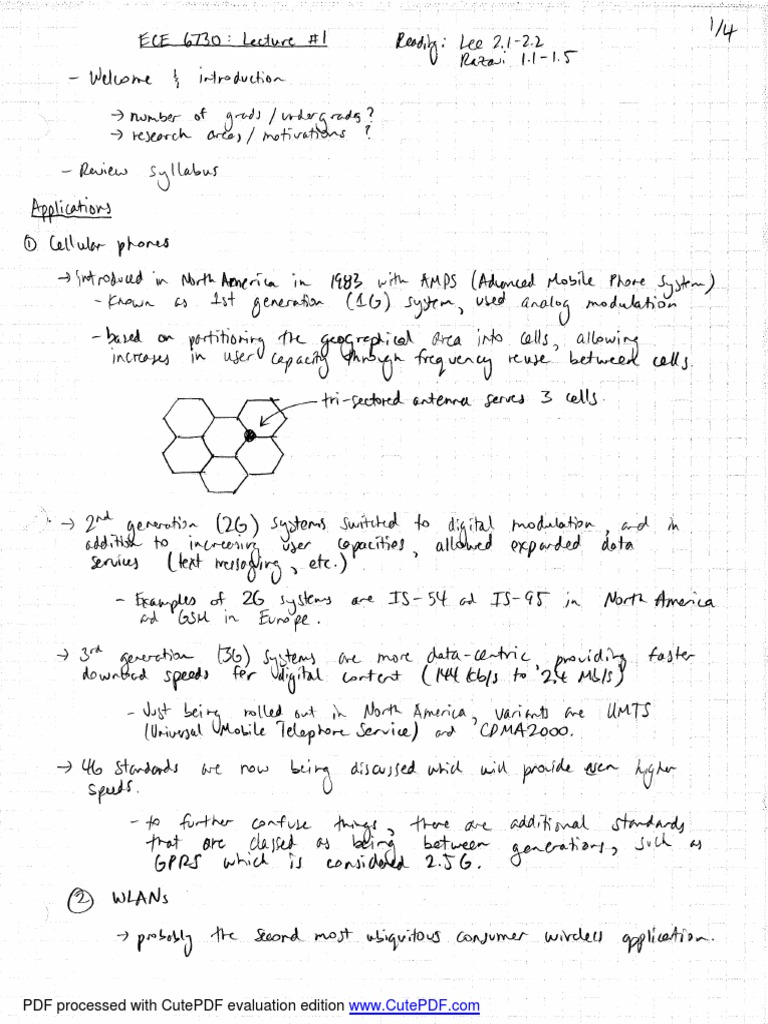 1/4
ECE 6730: Lecture #1
Reading: Lee 2.1-2.2
Razavi 1.1-1.5
- Welcome & introduction
→ number of grads/undergrads?
→ research areas/motivations?
- Review syllabus
Applications
① Cellular phones
→ introduced in North America in 1983 with AMPS (Advanced Mobile Phone System)
- Known as 1st generation (1G) system, used analog modulation
- based on partitioning the geographical area into cells, allowing
increases in user capacity through frequency reuse between cells.
tri-sectored antenna serves 3 cells.
→ 2nd generation (2G) systems switched to digital modulation, and in
addition to increasing user capacities, allowed expanded data
services (text messaging, etc.)
- Examples of 2G systems are IS-54 ad IS-95 in North America
ad GSM in Europe.
→ 3rd generation (3G) systems are more data-centric, providing faster
download speeds for digital content (144 kb/s to 2.4 Mb/s)
- Just being rolled out in North America, variants are UMTS
(Universal Mobile Telephone Service) and CDMA2000.
→ 4G standards are now being discussed which will provide even higher
speeds.
- to further confuse things, there are additional standards
that are classed as being between generations, such as
GPRS which is considered 2.5G.
② WLANs
→ probably the second most ubiquitous consumer wireless application.
PDF processed with CutePDF evaluation edition www.CutePDF.com